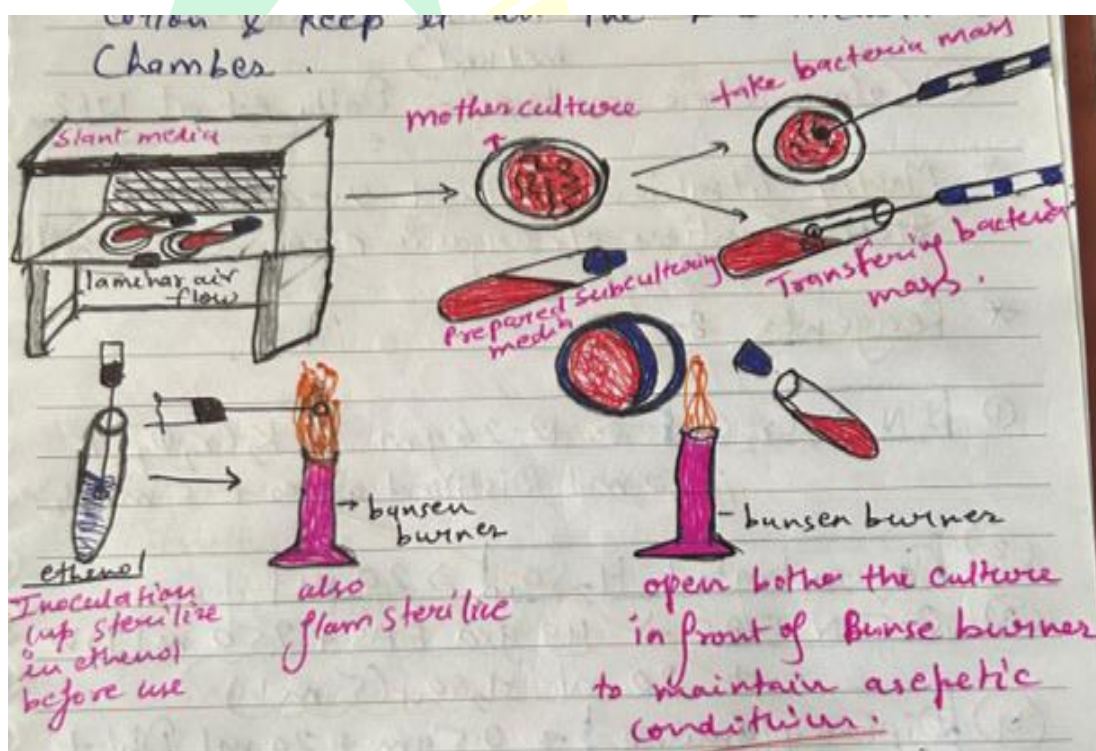 cotton & keep it in the
Chamber.
Slant media
laminar air
flow
mother culture
take bacteria mass
Prepared subculturing
media
Transfering bacteria
mass.
ethenol
Inoculation
lup sterilize
in ethenol
before use
bunsen
burner
also
flam sterilize
bunsen burner
open bothe the culture
in front of Bunse burner
to maintain asepetic
condition.